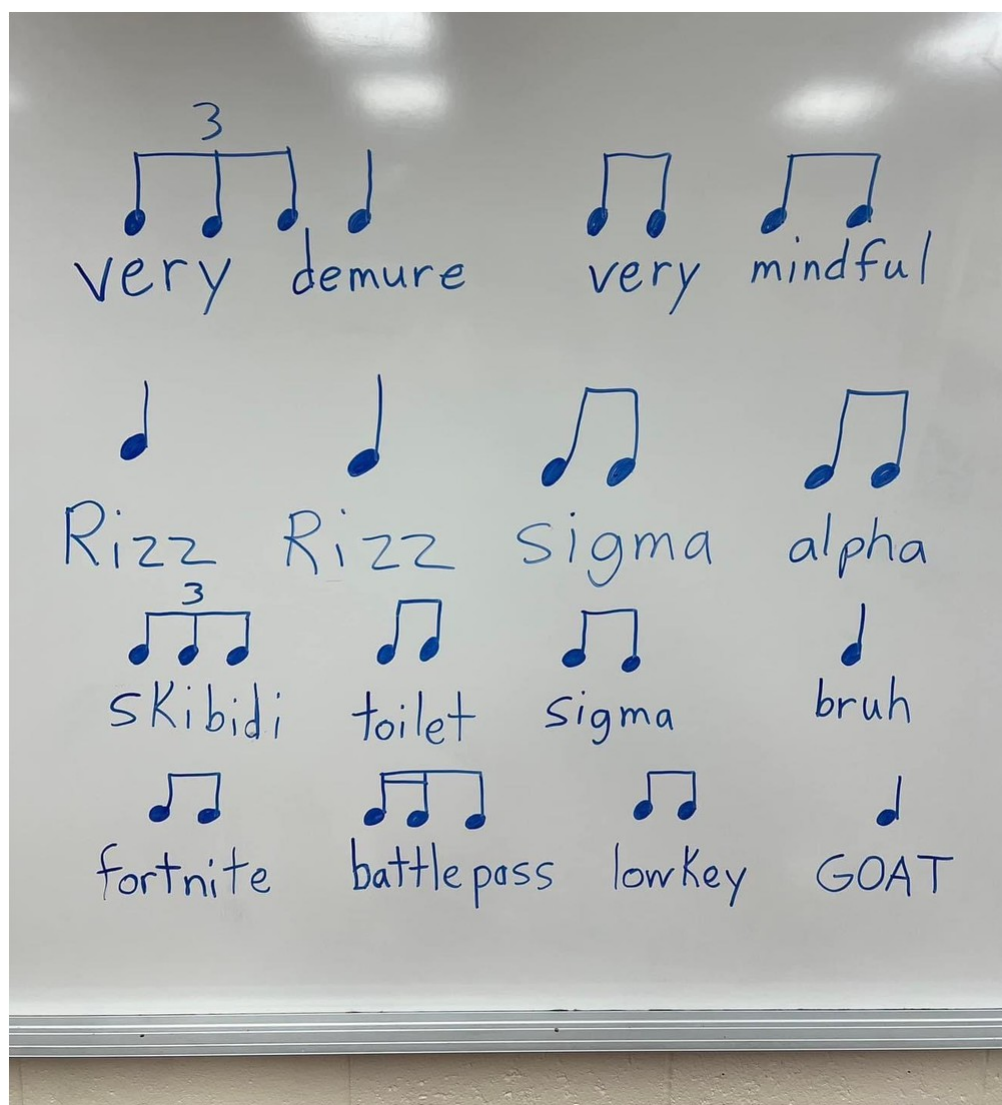 3
very demure very mindful
Rizz Rizz sigma alpha
3
skibidi toilet sigma bruh
fortnite battlepass lowkey GOAT